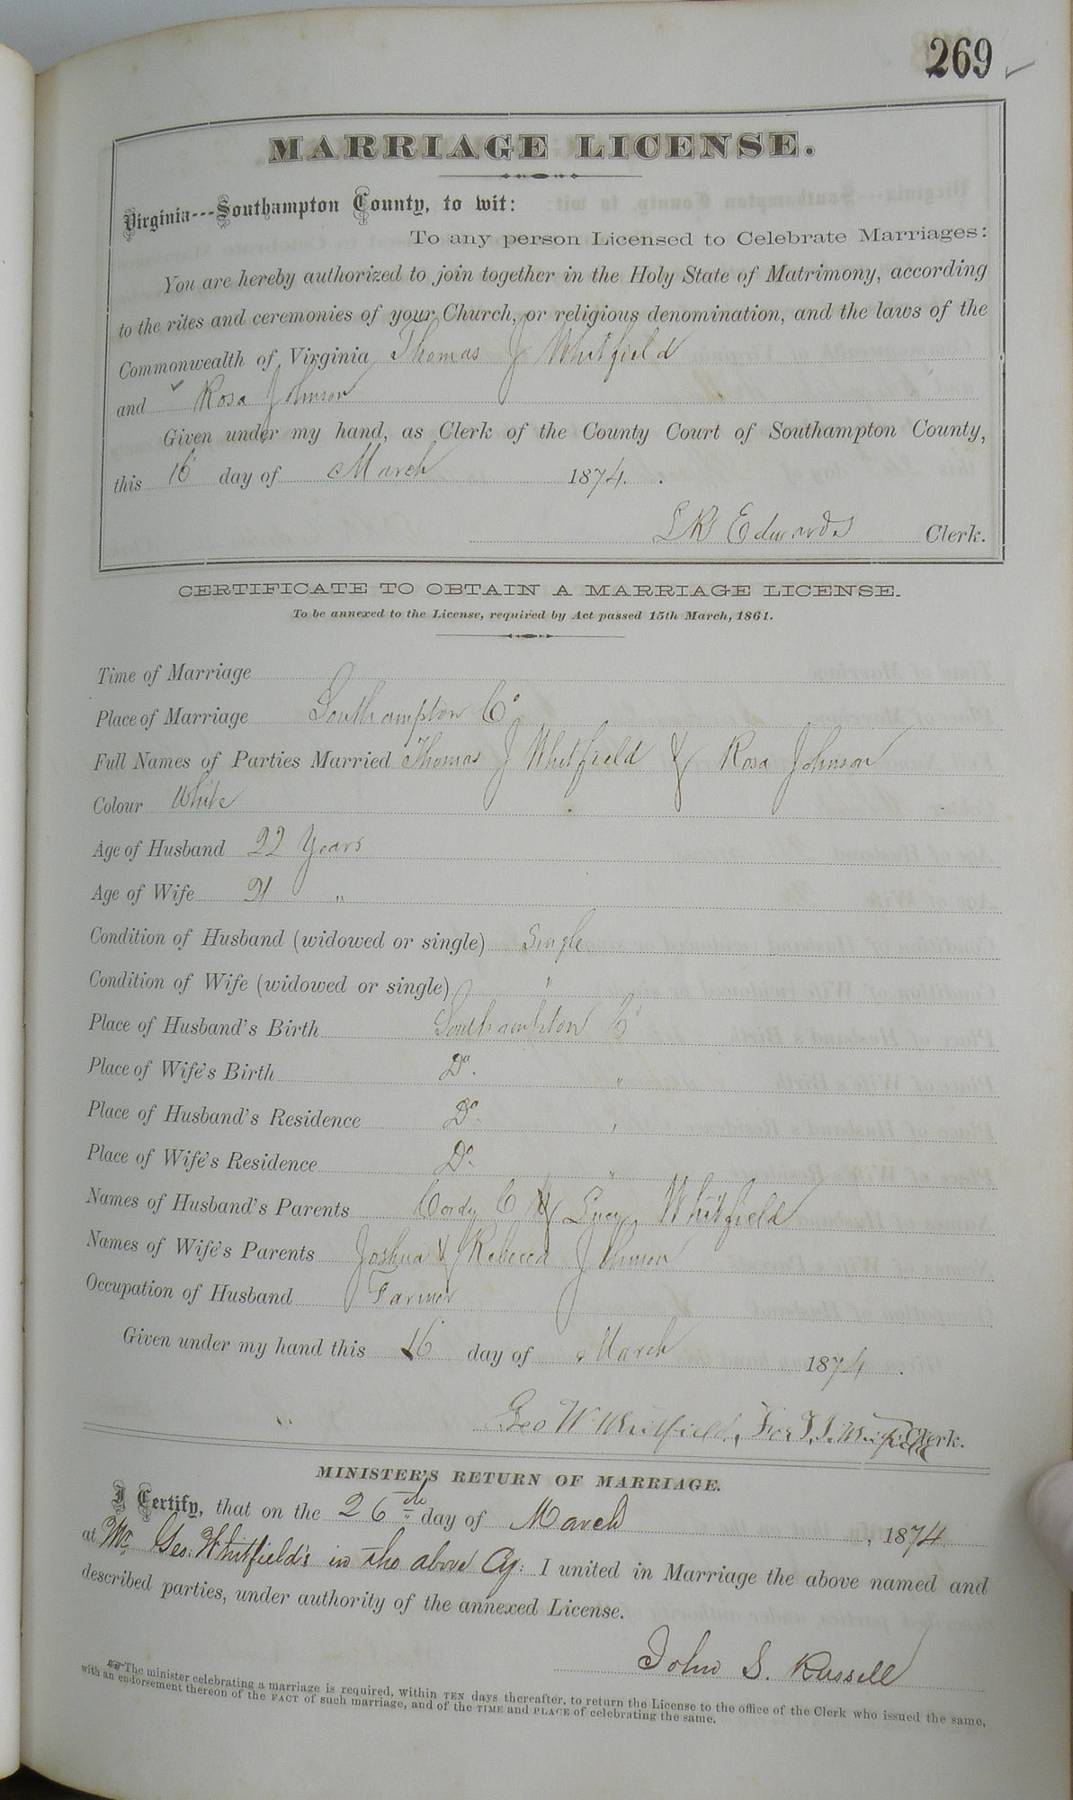 269
MARRIAGE LICENSE.
Virginia---Southampton County, to wit:
To any person Licensed to Celebrate Marriages:
You are hereby authorized to join together in the Holy State of Matrimony, according
to the rites and ceremonies of your Church, or religious denomination, and the laws of the
Commonwealth of Virginia Thomas J Whitfield
and Rosa Johnson
Given under my hand, as Clerk of the County Court of Southampton County,
this 16 day of March 1874.
L R Edwards Clerk.
CERTIFICATE TO OBTAIN A MARRIAGE LICENSE.
To be annexed to the License, required by Act passed 15th March, 1861.
Time of Marriage
Place of Marriage Southampton Co
Full Names of Parties Married Thomas J Whitfield & Rosa Johnson
Colour White
Age of Husband 22 Years
Age of Wife 21 "
Condition of Husband (widowed or single) Single
Condition of Wife (widowed or single) "
Place of Husband's Birth Southampton Co
Place of Wife's Birth Do. "
Place of Husband's Residence Do. "
Place of Wife's Residence Do. "
Names of Husband's Parents Cordy C & Lucy Whitfield
Names of Wife's Parents Joshua & Rebecca Johnson
Occupation of Husband Farmer
Given under my hand this 16 day of March 1874.
Geo W Whitfield, For T. J. Whitfield Clerk.
MINISTER'S RETURN OF MARRIAGE.
I Certify, that on the 26th day of March, 1874
at Mr. Geo. Whitfield's in the above Cy. I united in Marriage the above named and
described parties, under authority of the annexed License.
John S. Russell
The minister celebrating a marriage is required, within TEN days thereafter, to return the License to the office of the Clerk who issued the same,
with an endorsement thereon of the FACT of such marriage, and of the TIME and PLACE of celebrating the same.